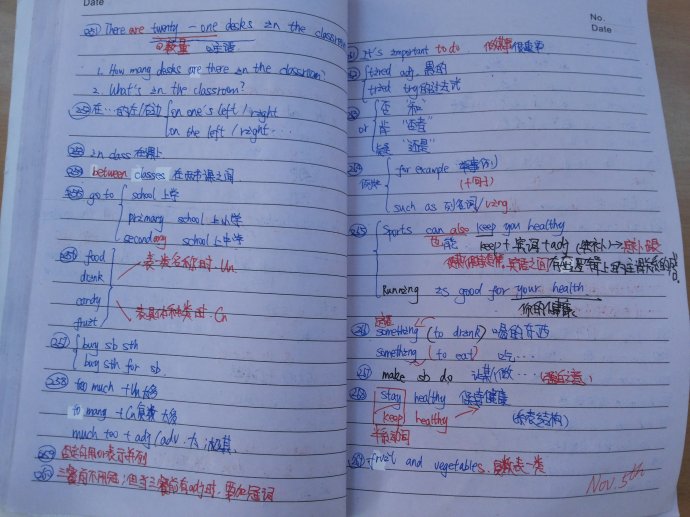 Date
251 There are twenty-one desks in the classroom
①数量 ②主语
1. How many desks are there in the classroom?
2. What's in the classroom?
252 在…的左/右边 on one's left / right
on the left / right …
253 in class 在课上
254 between classes 在两节课之间
255 go to school 上学
primary school 上小学
secondary school 上中学
256 food
drink 表类名称时, Un
candy
fruit 表具体种类时, Cn
257 buy sb sth
buy sth for sb
258 too much + Un 太多
too many + Cn复数 太多
much too + adj/adv 太
259 否定句用or表示并列
260 三餐前不用冠; 但当三餐前有adj时, 要加冠词
No.
Date
It's important to do 做某事很重要
tired adj. 累的
tried try的过去式
or 否 "和"
肯 "或者"
"还是"
例如 for example 举事例
(+句子)
such as 列名词/ving
265 Sports can also keep you healthy
也 能 keep + 宾词 + adj
Running is good for your health
你的健康
266 something (to drink) 喝的东西
something (to eat) 吃…
267 make sb do 让某人做…
268 stay healthy 保持健康
keep healthy (系表结构)
半系动词
fruit and vegetables. 表一类
Nov. 5th